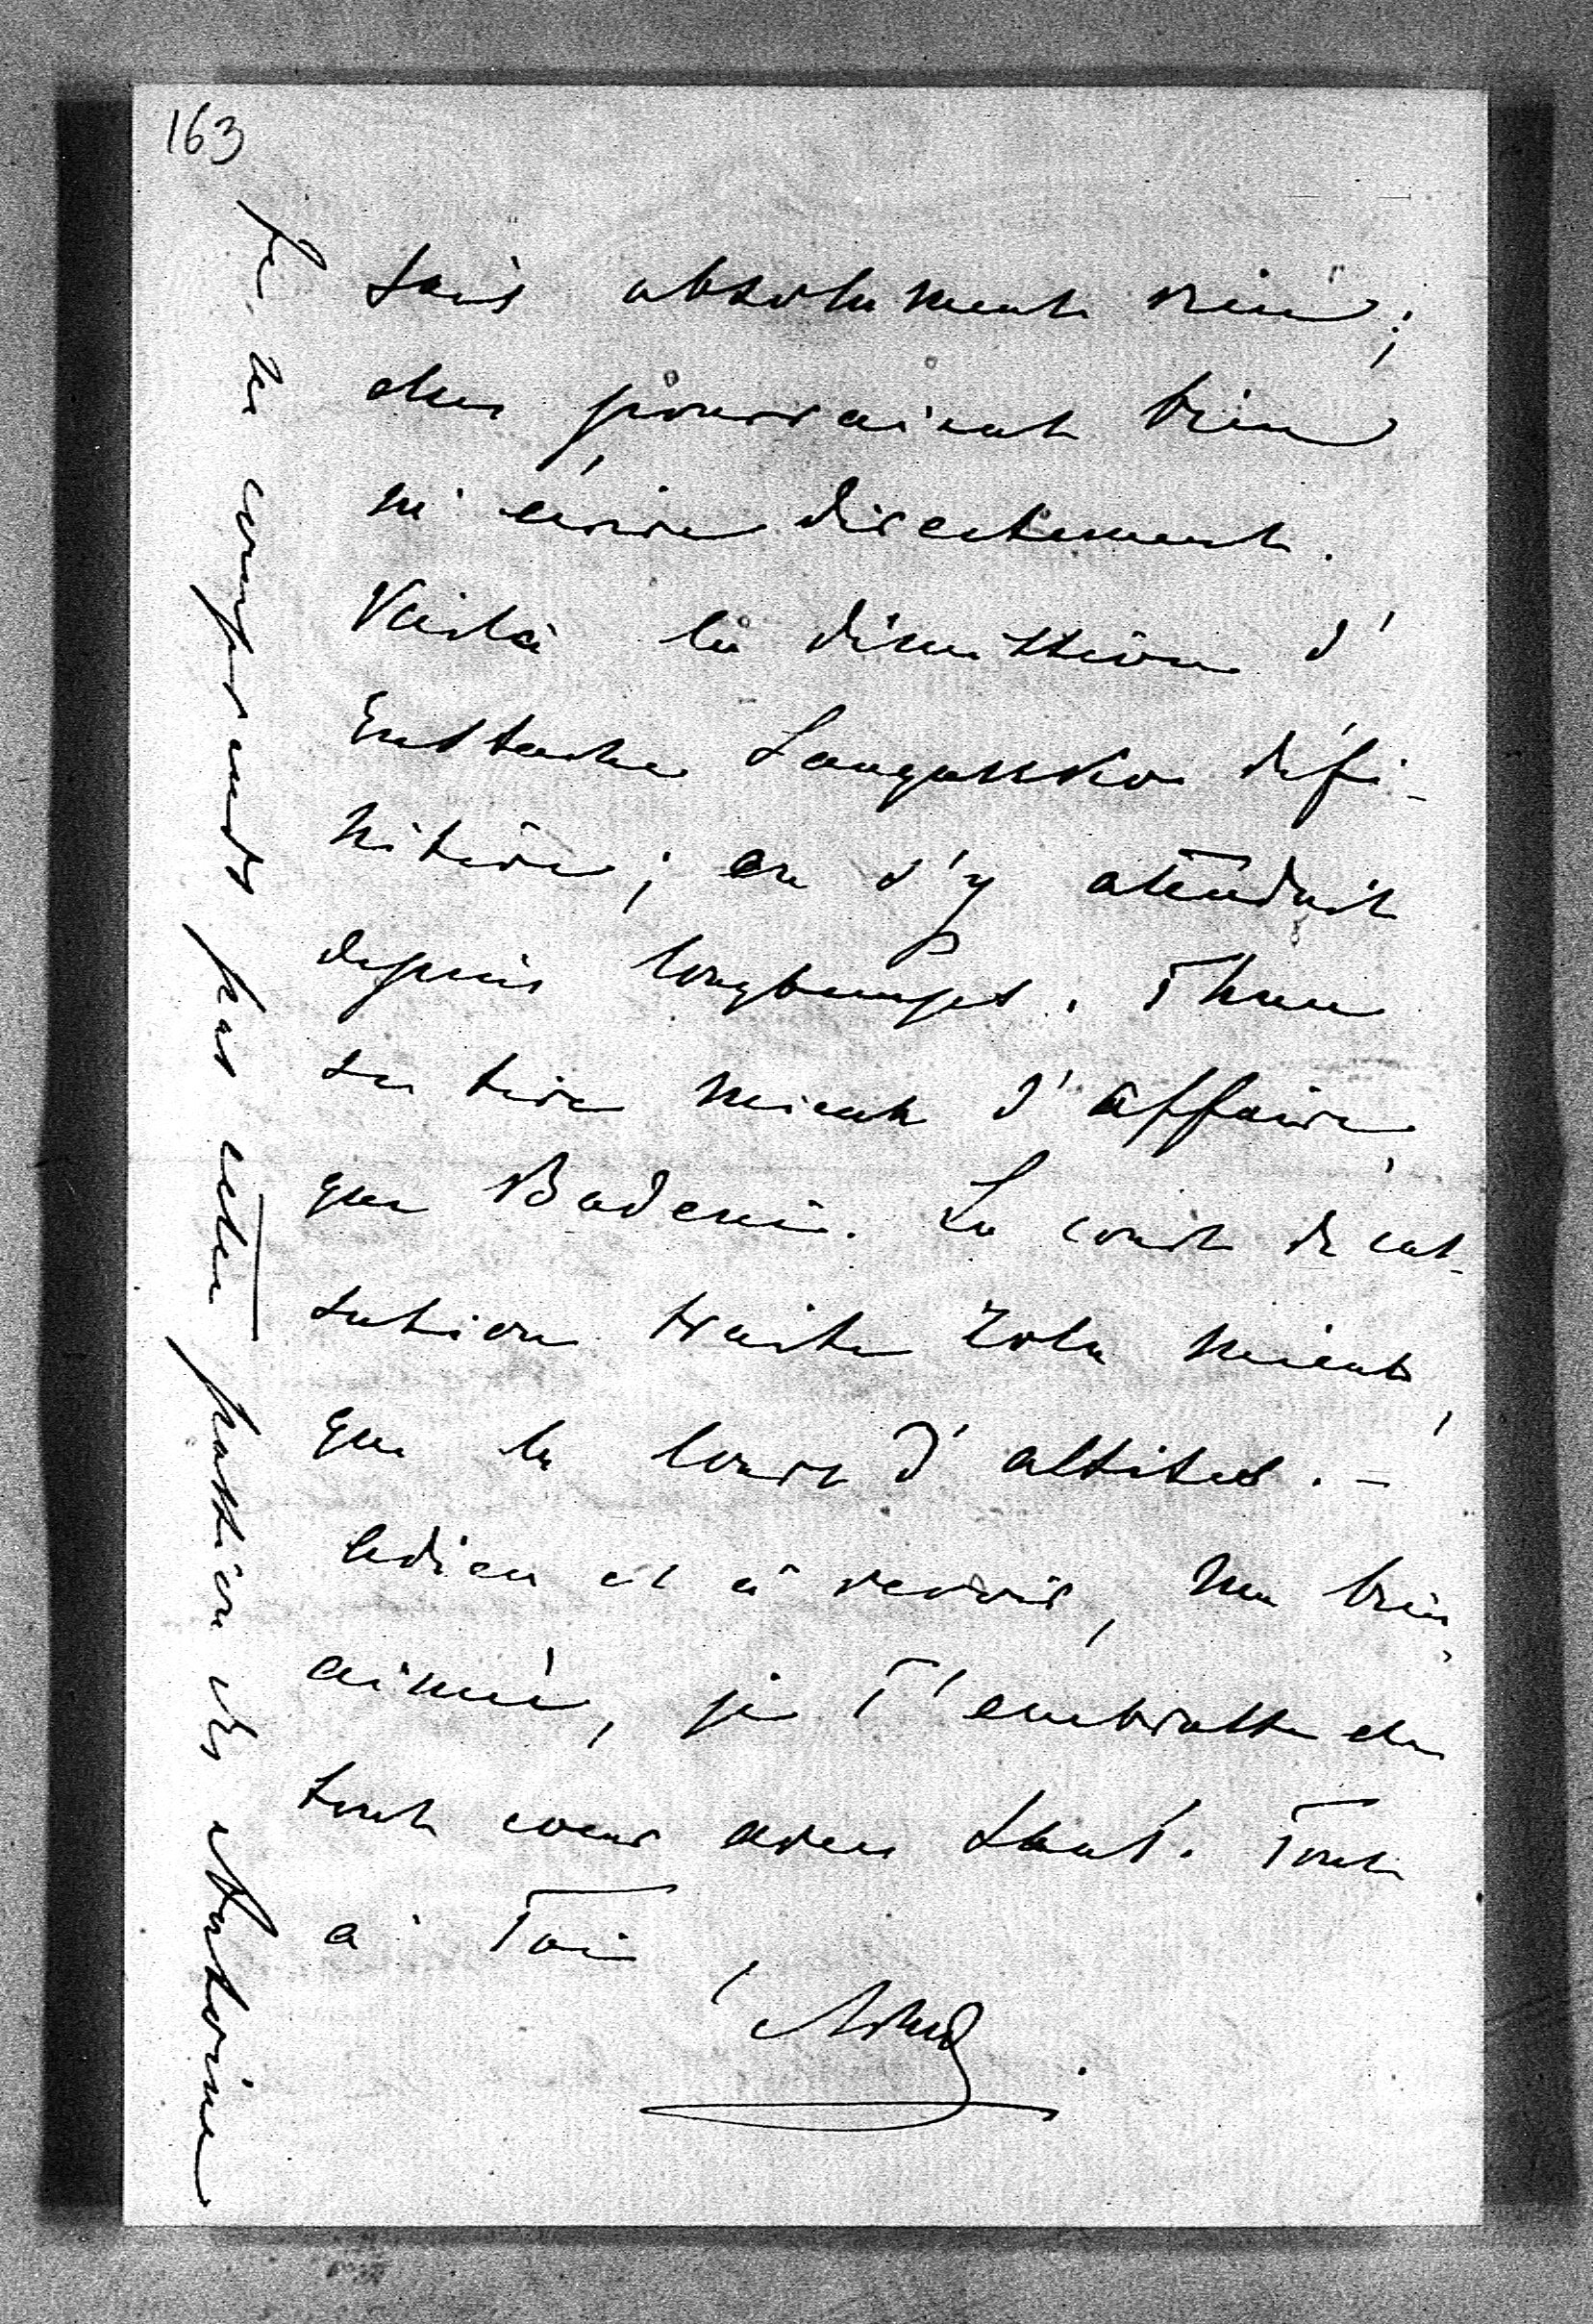 163
sais absolument rien;
elles pourraient bien
m'écrire directement.
Voilà la démission d'
Eustache Sanguszko défi-
nitive; on s'y attendait
depuis longtemps. Thun
se tire mieux d'affaire
que Badeni. La cour de cas-
sation traite Zola mieux
que la cour d'assises. –
Adieu et à revoir, ma bien
aimée, je T'embrasse de
tout coeur avec Tout
à Toi
Je ne comprends pas cette passion de Antoine